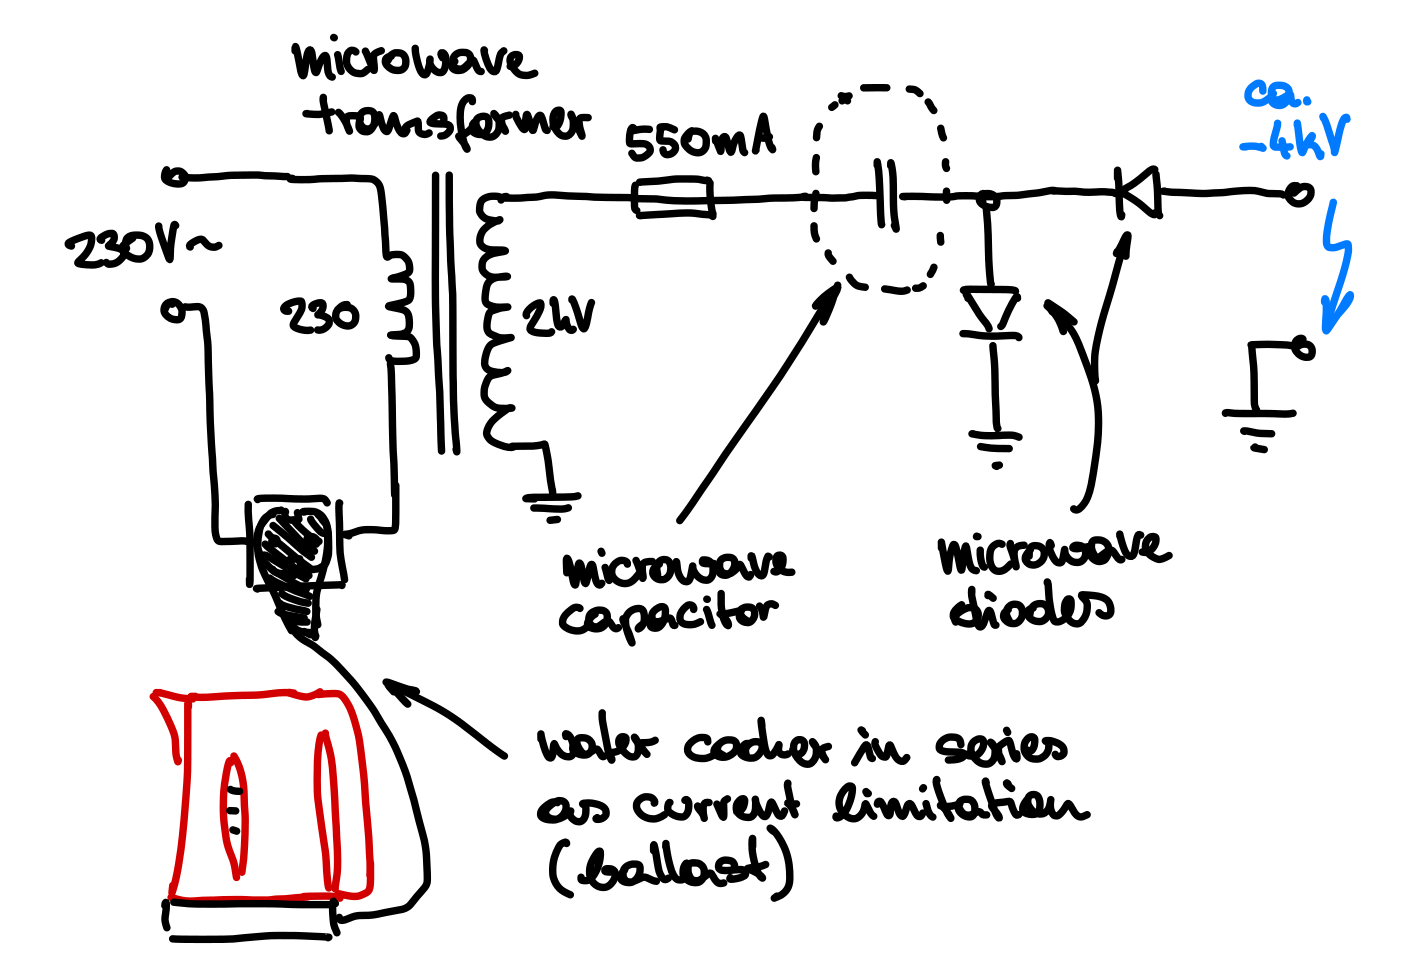 microwave
transformer
550mA
ca.
-4kV
230V~
230
2kV
microwave
capacitor
microwave
diodes
water cooker in series
as current limitation
(ballast)